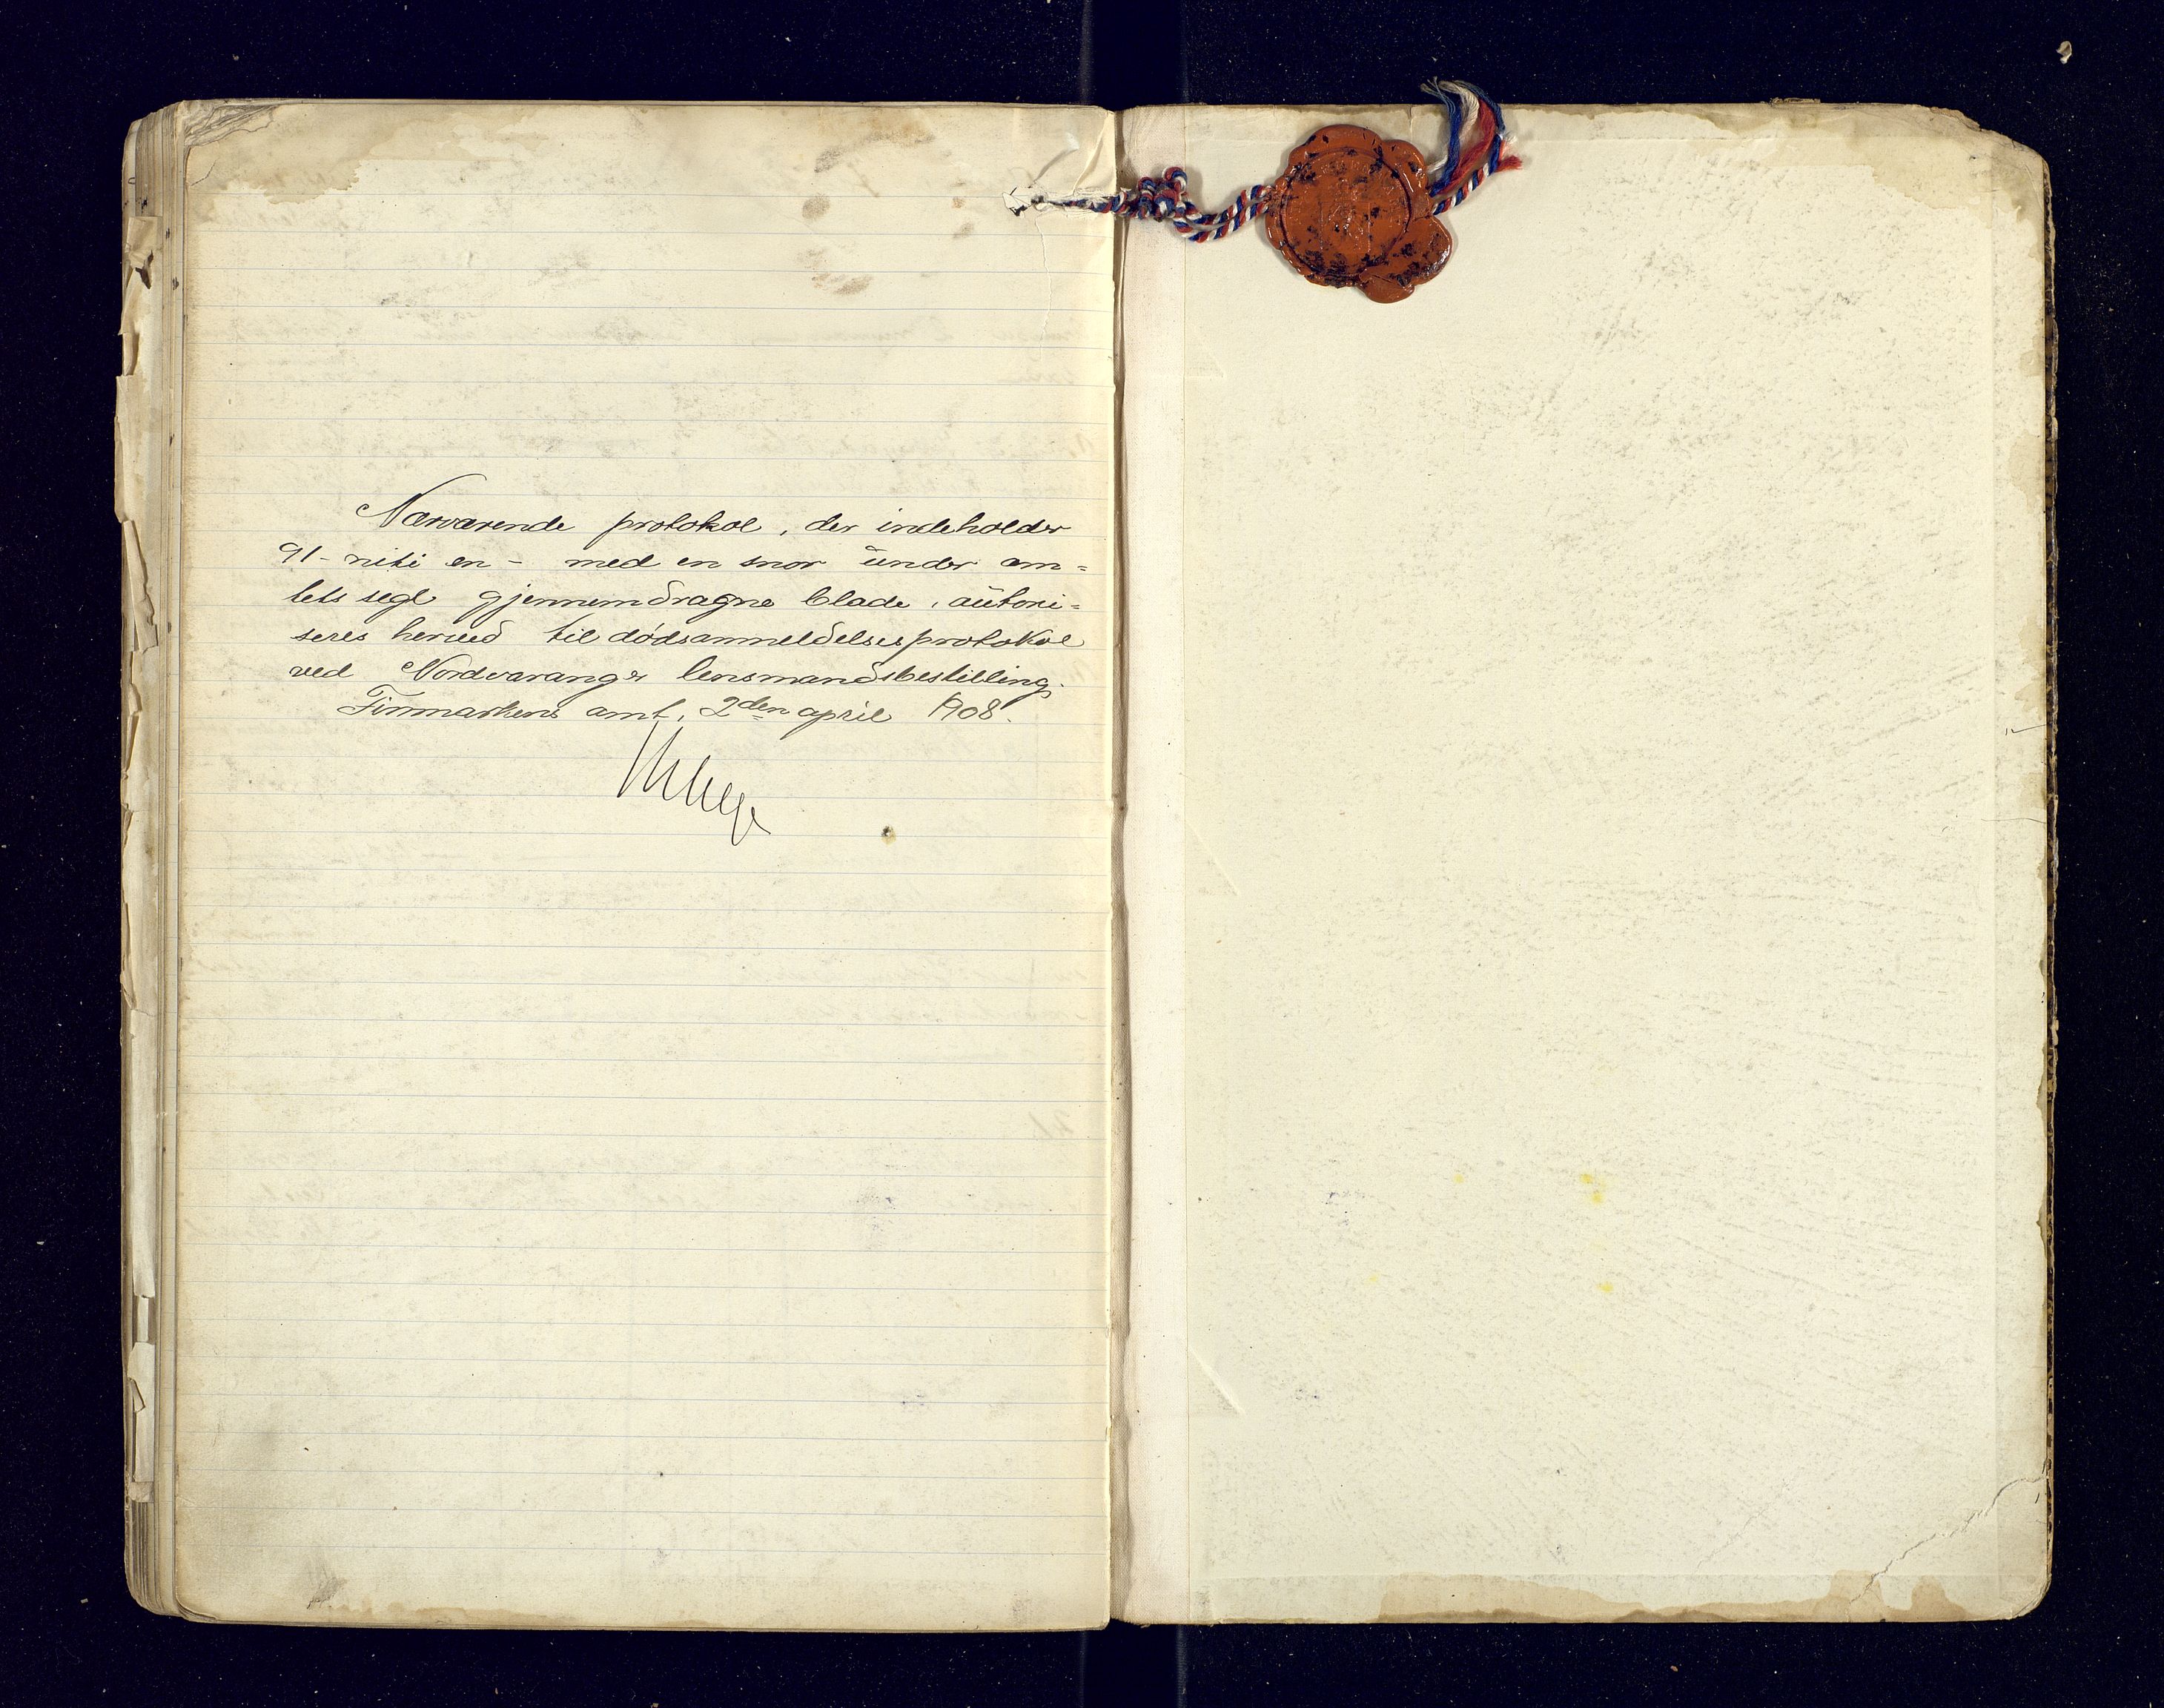 Nærværende protokol, der indeholder
91 - niti en - med en snor under am=
tets segl gjennemdragne blade, autori=
seres herved til dødsanmeldelsesprotokol
ved Nordvaranger lensmandsbestilling.
Finmarkens amt, 2den april 1908.